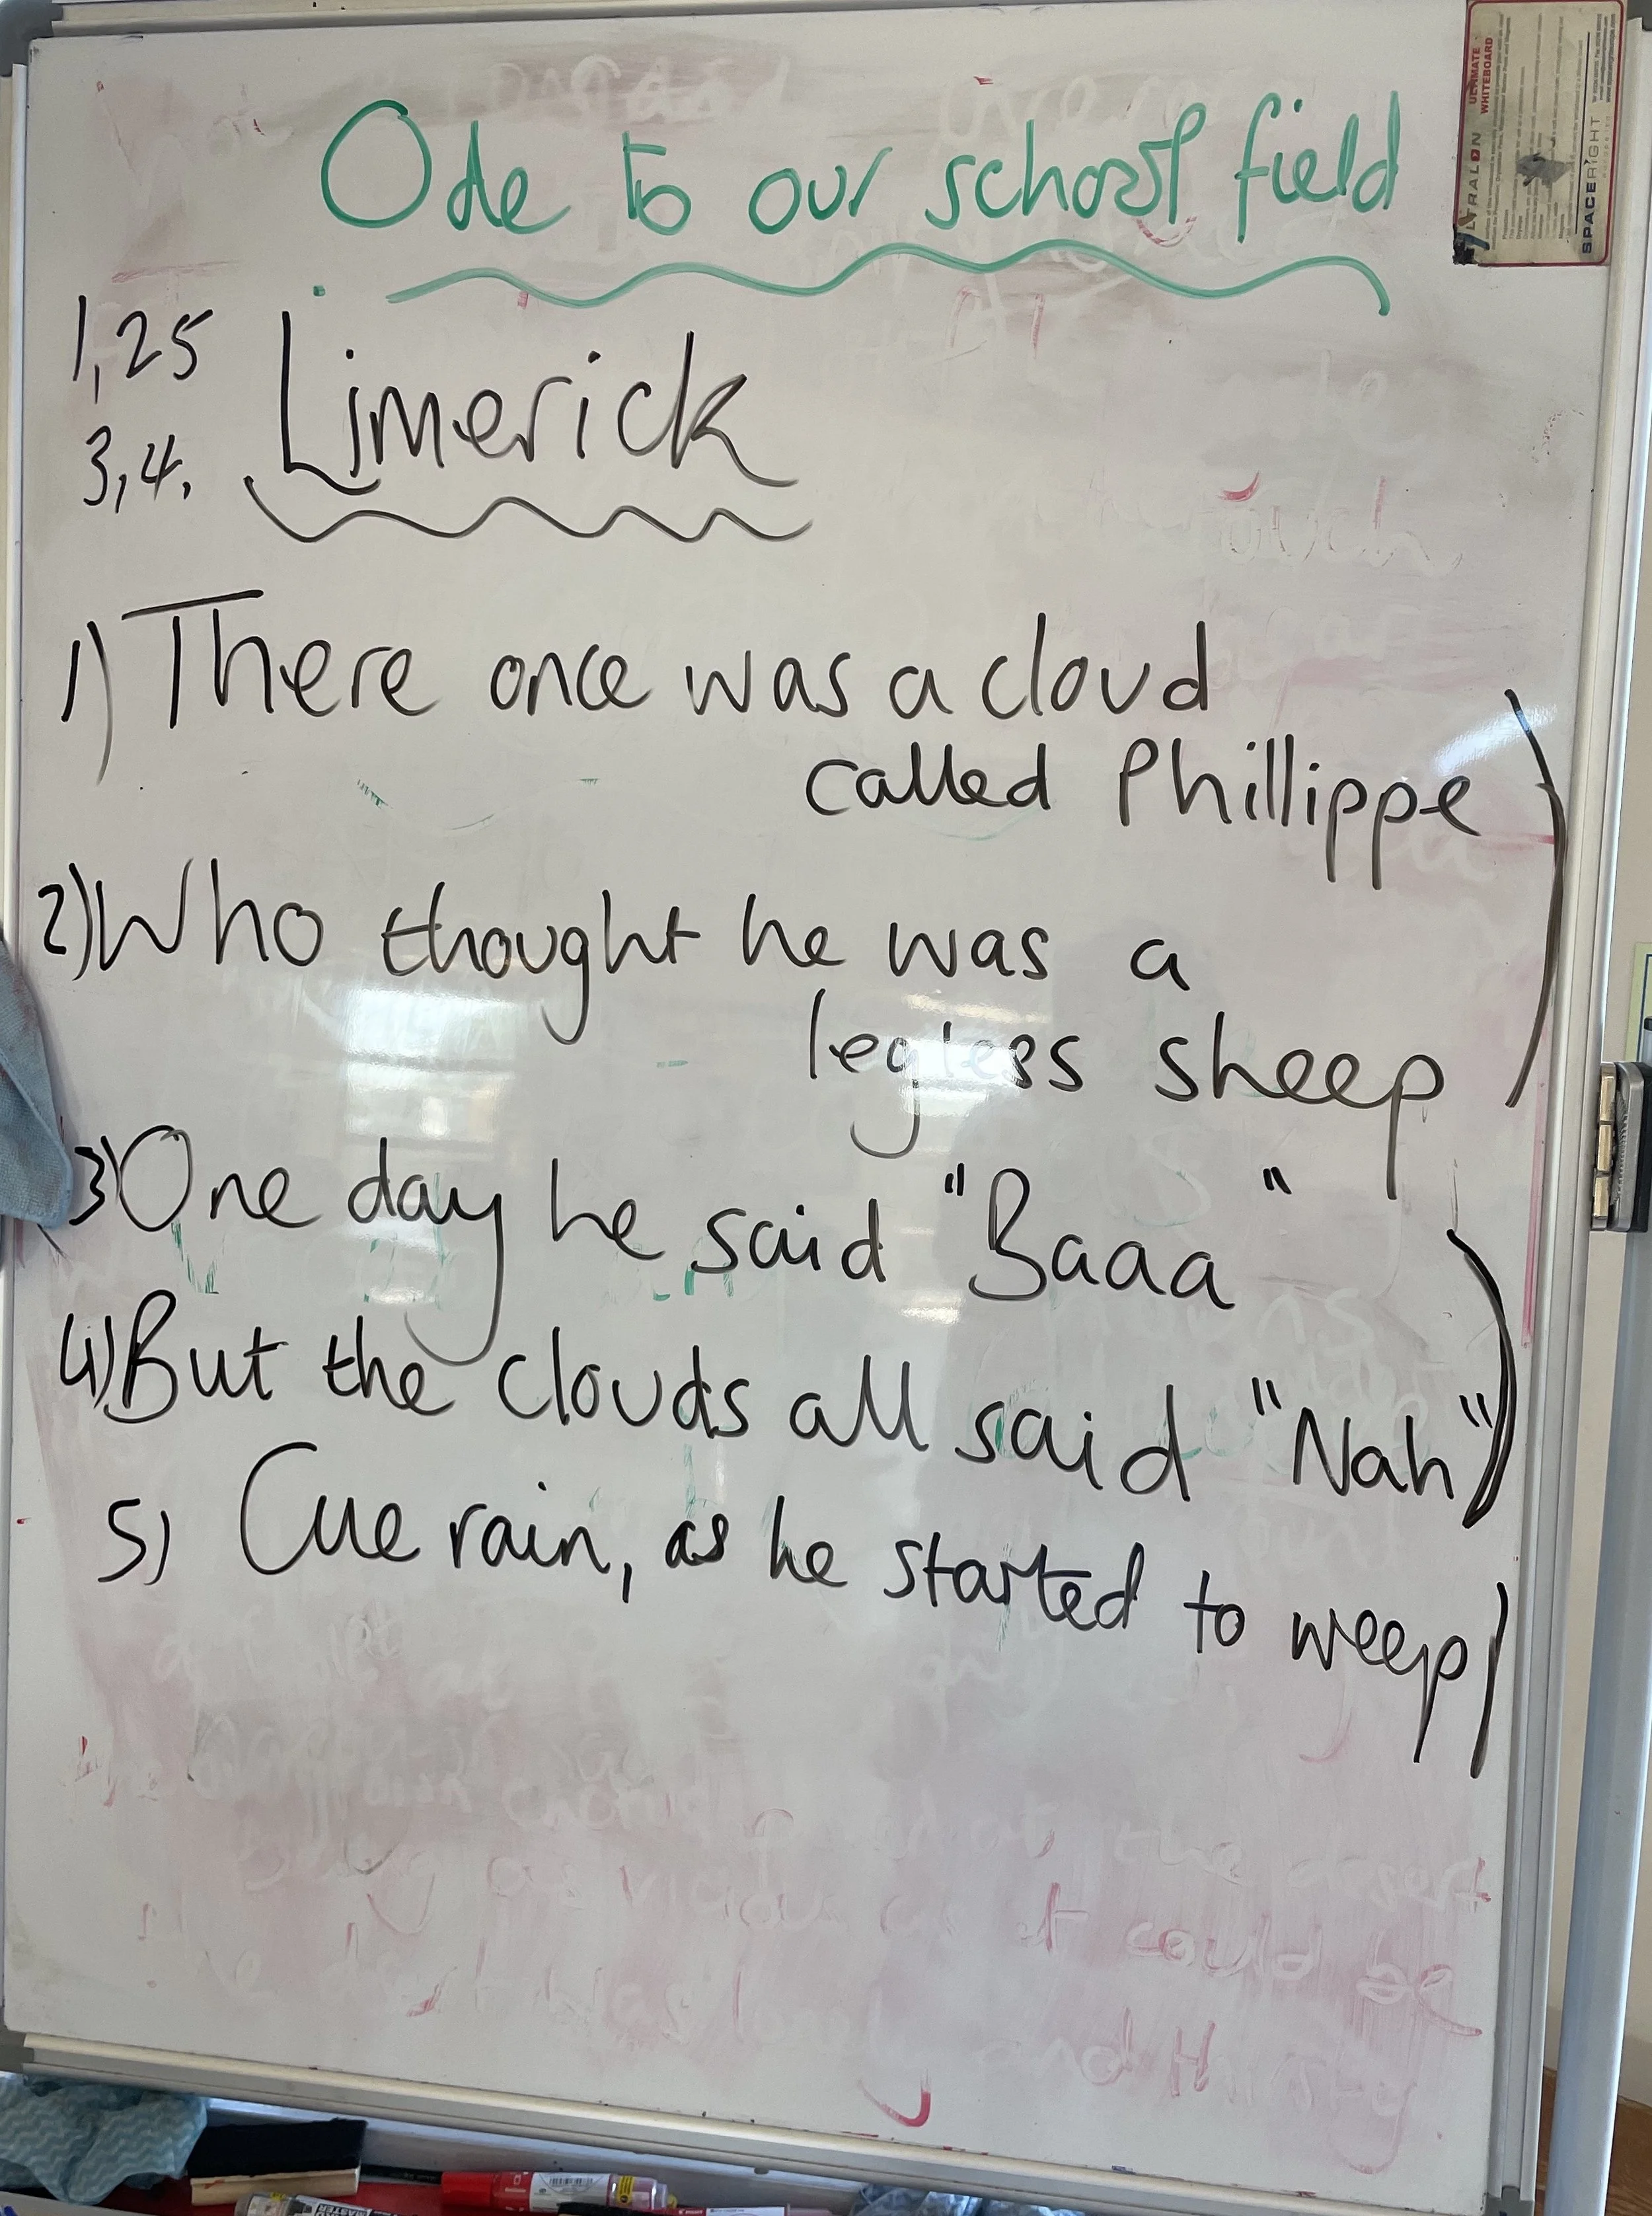 Ode to our school field
1,25
3,4.
Limerick
1) There once was a cloud
called Phillippe
2) Who thought he was a
legless sheep
3) One day he said "Baaa"
4) But the clouds all said "Nah"
5) Cue rain, as he started to weep
ULTIMATE
WHITEBOARD
SPACERIGHT